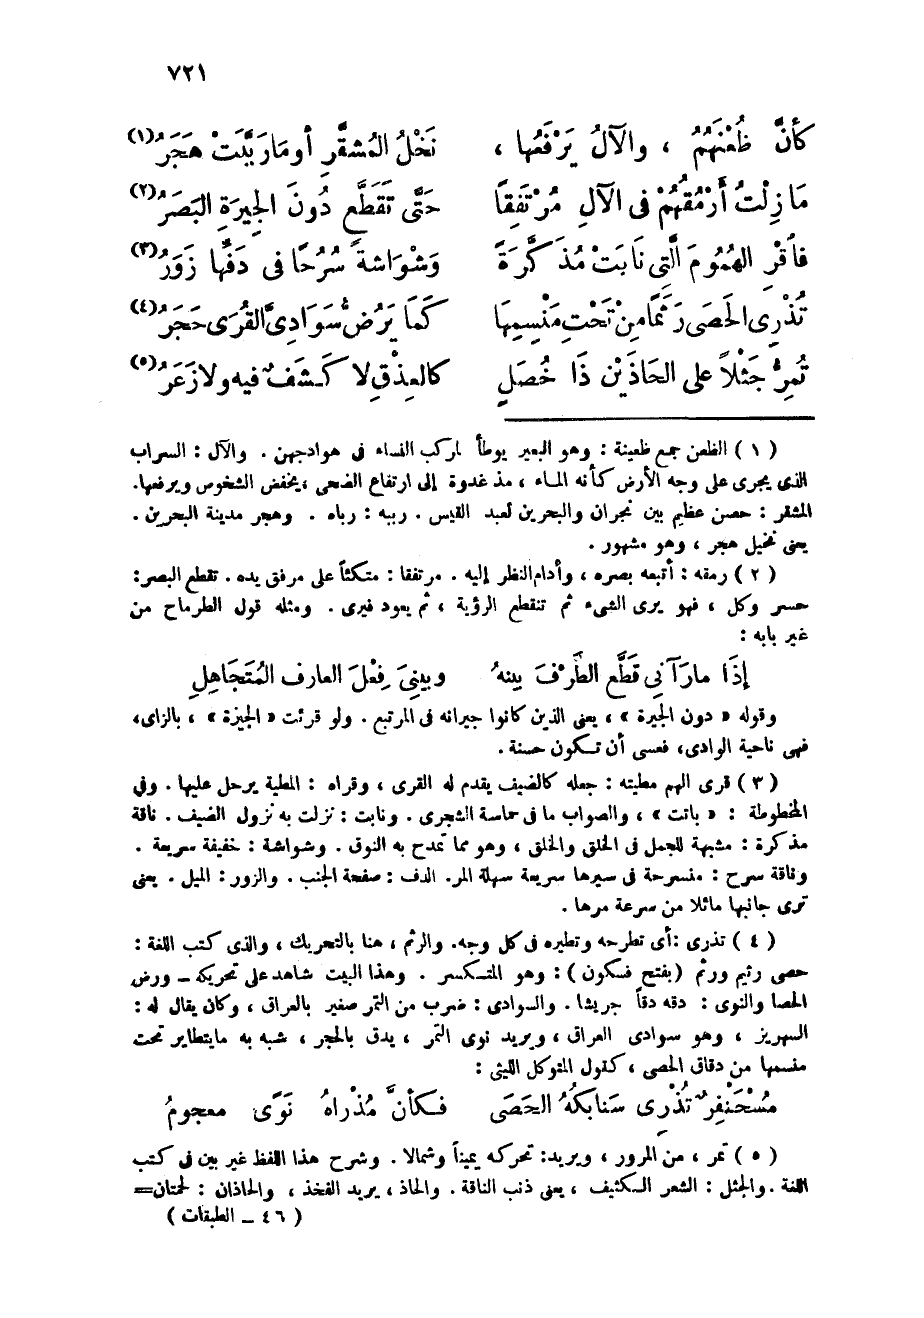 ٧٢١
كَأنَّ ظُعْنَهُمُ ، والآلُ يَرْفَعُها ، نَخْلُ المُشقَّرِ أو مَا رَبَّبَتْ هَجَرُ(١)
مَا زِلْتُ أَرْمُقُهُمْ فى الآلِ مُرْتَفِقًا حَتَّى تَقَطَّع دُونَ الجِيرَةِ البَصَرُ(٢)
فأَقْرِ الهُمُومَ الَّتِي نَابَتْ مُذَكَّرَةً وَشْوَاشةً سُرُحًا فى دَفِّها زَوَرُ(٣)
تُذْرِى الحَصَى رَثَمًا مِنْ تَحْتِ مَنْسِمِهَا كَمَا يَرُضُّ سَوَادِىَّ القُرَى حَجَرُ(٤)
تُمِرُّ جَثْلاً على الحَاذَيْنِ ذَا خُصَلٍ كالعِذْقِ لا كَشَفٌ فيه ولا زَعَرُ(٥)
( ١ ) الظعن جمع ظعينة : وهو البعير يوطأ لمركب النساء فى هوادجهن . والآل : السراب
الذى يجرى على وجه الأرض كأنه الماء ، مذ غدوة إلى ارتفاع الضحى ، يخفض الشخوص ويرفعها.
المشقر : حصن عظيم بين نجران والبحرين لعبد القيس . ربيه : رباه . وهجر مدينة البحرين .
يعنى نخيل هجر ، وهو مشهور .
( ٢ ) رمقه : أتبعه بصره ، وأدام النظر إليه . مرتفقا : متكئاً على مرفق يده . تقطع البصر:
حسر وكل ، فهو يرى الشىء ثم تنقطع الرؤية ، ثم يعود فيرى . ومثله قول الطرماح من
غير بابه :
إذَا ما رَآنى قَطَّع الطَّرْفَ بينهُ وبينىَ فِعْلَ العارف المُتَجَاهِلِ
وقوله « دون الجيرة » ، يعنى الذين كانوا جيرانه فى المرتبع . ولو قرئت « الجيزة » ، بالزاى،
فهى ناحية الوادى، فعسى أن تكون حسنة .
( ٣ ) قرى الهم مطيته : جعله كالضيف يقدم له القرى ، وقراه : المطية يرحل عليها . وفي
المخطوطة : « باتت » ، والصواب ما فى حماسة الشجرى . ونابت : نزلت به نزول الضيف . ناقة
مذكرة : مشبهة للجمل فى الخلق والخلق ، وهو مما تمدح به النوق . وشواشة : خفيفة سريعة .
وناقة سرح : منسرحة فى سيرها سريعة سهلة المر. الدف : صفحة الجنب . والزور : الميل . يعنى
ترى جانبها مائلا من سرعة مرها .
( ٤ ) تذرى : أى تطرحه وتطيره فى كل وجه. والرثم ، هنا بالتحريك ، والذى كتب اللغة :
حصى رثيم ورثم (بفتح فسكون) : وهو المتكسر . وهذا البيت شاهد على تحريكه – ورض
الحصا والنوى : دقه دقاً جريشا . والسوادى : ضرب من التمر صغير بالعراق ، وكان يقال له :
السهريز ، وهو سوادى العراق ، ويريد نوى التمر ، يدق بالحجر ، شبه به مايتطاير تحت
منسمها من دقاق الحصى ، كقول المتوكل الليثى :
مُسْحَنْفِرٌ تُذْرِى سَنَابكهُ الحَصَى فكأنَّ مُذْراهُ نَوًى معجومُ
( ٥ ) تمر ، من المرور ، ويريد: تحركه يميناً وشمالا . وشرح هذا اللفظ غير بين فى كتب
اللغة . والجثل : الشعر الكثيف ، يعنى ذنب الناقة . والحاذ ، يريد الفخذ ، والحاذان : لحمتان=
( ٤٦ – الطبقات )